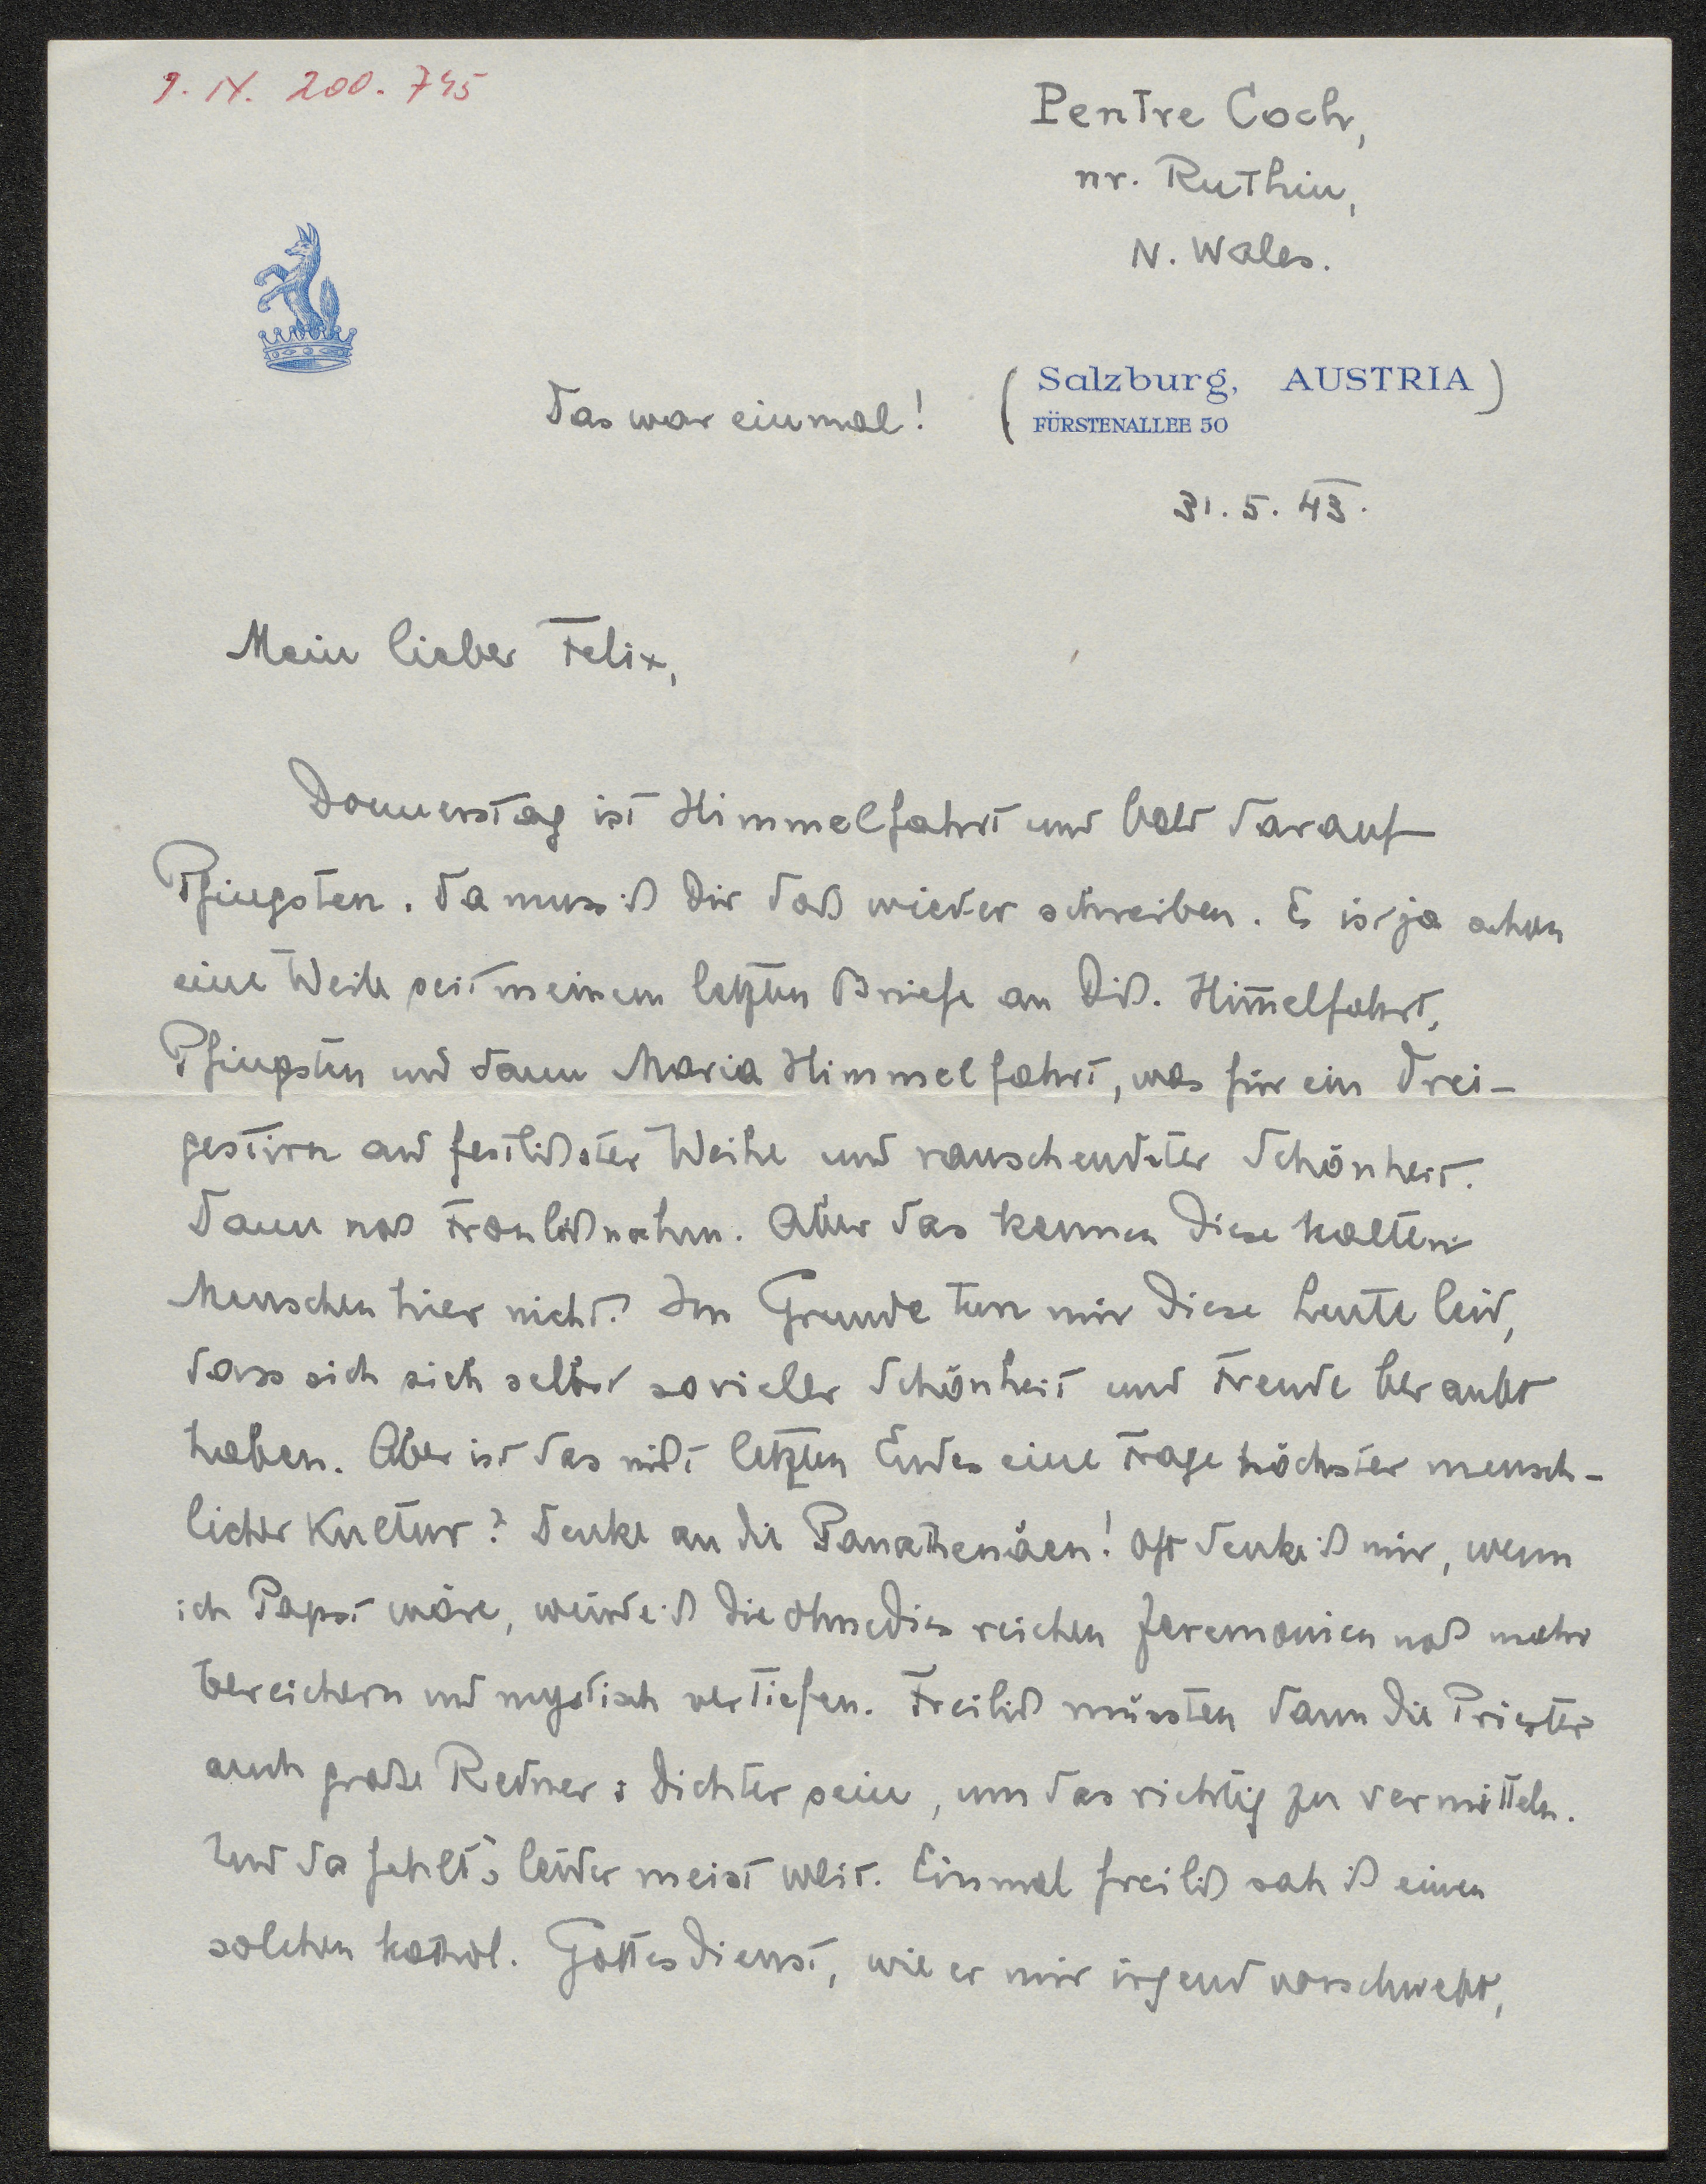 9. IX. 200. 745
Pentre Coch,
nr. Ruthin,
N. Wales.
Das war einmal!
(Salzburg, AUSTRIA)
FÜRSTENALLEE 50
31. 5. 43.
Mein lieber Felix,
Donnerstag ist Himmelfahrt und bald darauf
Pfingsten. Da muss ich Dir doch wieder schreiben. Es ist ja schon
eine Weile seit meinem letzten Briefe an Dich. Him̅elfahrt,
Pfingsten und dann Maria Himmelfahrt, was für ein Drei-
gestirn an festlichster Weihe und rauschendster Schönheit.
Dann noch Fronleichnahm. Aber das kennen diese kalten
Menschen hier nicht. Im Grunde tun mir diese Leute leid,
dass sich sich selbst sovieler Schönheit und Freude beraubt
haben. Aber ist das nicht letzten Endes eine Frage höchster mensch-
licher Kultur? Denke an die Panathenäen! Oft denke ich mir, wenn
ich Papst wäre, würde ich die ohnedies reichen Zeremonien noch mehr
bereichern und mystisch vertiefen. Freilich müssten dann die Priester
auch große Redner & Dichter sein, um das richtig zu vermitteln.
Und da fehlt's leider meist weit. Einmal freilich sah ich einen
solchen kathol. Gottesdienst, wie er mir irgend vorschwebt,